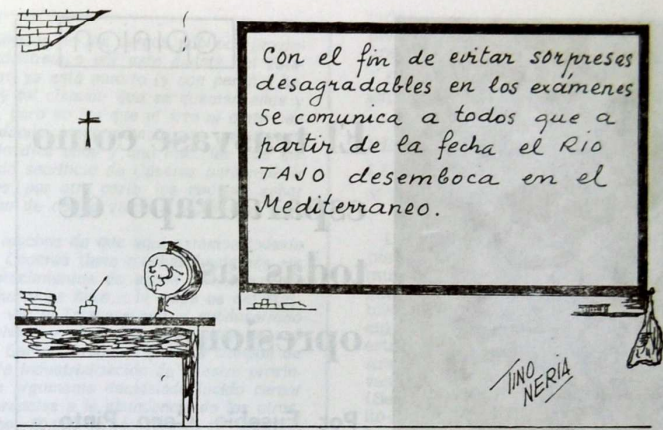 Con el fin de evitar sorpresas
desagradables en los exámenes
Se comunica a todos que a
partir de la fecha el RIO
TAJO desemboca en el
Mediterraneo.
TINO
NERIA